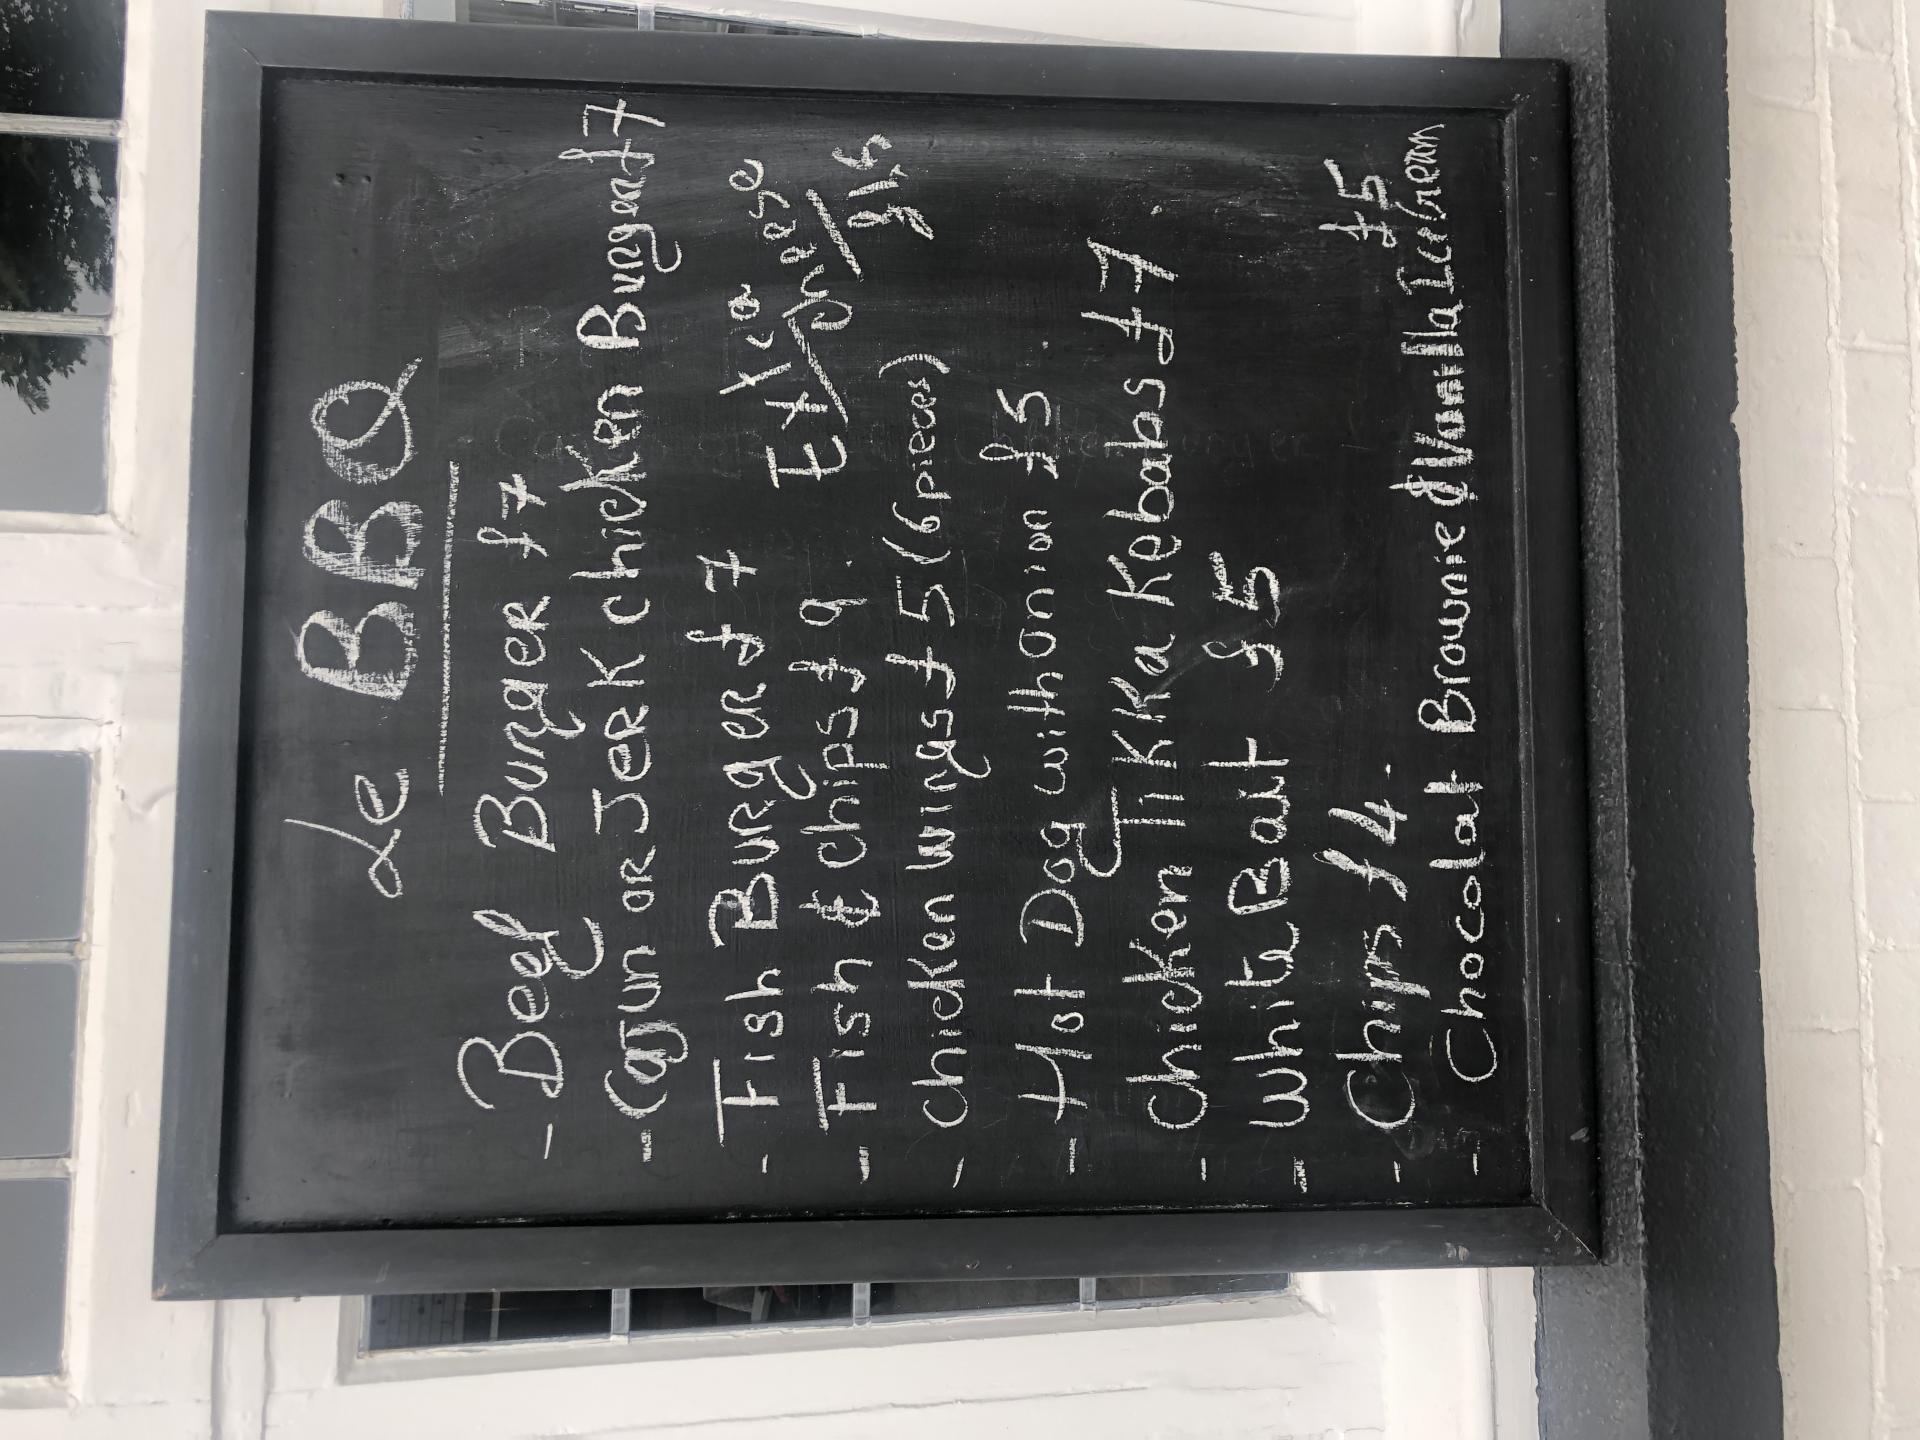 Le BBQ
- Beef Burger £7
- Cajun or Jerk Chicken Burger £7
- Fish Burger £7
Extra
Cheese
£1,5
- Fish & Chips £9.
- Chicken Wings £5 (6 pieces)
- Hot Dog with onion £5.
- Chicken Tikka Kebabs £7.
- White Bait £5
- Chips £4.
£5
- Chocolat Brownie & Vanilla Icecream